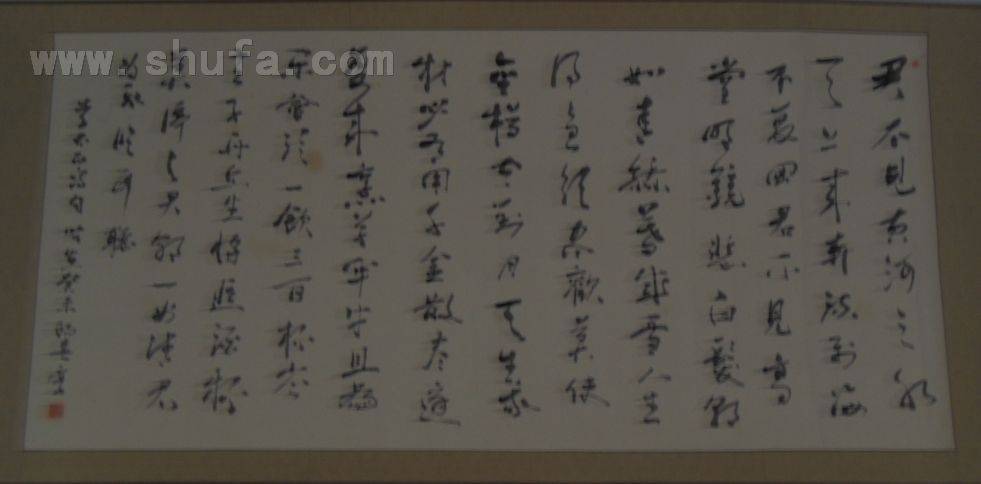 www.shufa.com
君不見黃河之水
天上來奔流到海
不復回君不見高
堂明鏡悲白髮朝
如青絲暮成雪人生
得意須盡歡莫使
金樽空對月天生我
材必有用千金散盡還
復來烹羊宰牛且為
樂會須一飲三百杯岑
夫子丹丘生將進酒杯
莫停與君歌一曲請君
為我傾耳聽
李太白詩句 癸未